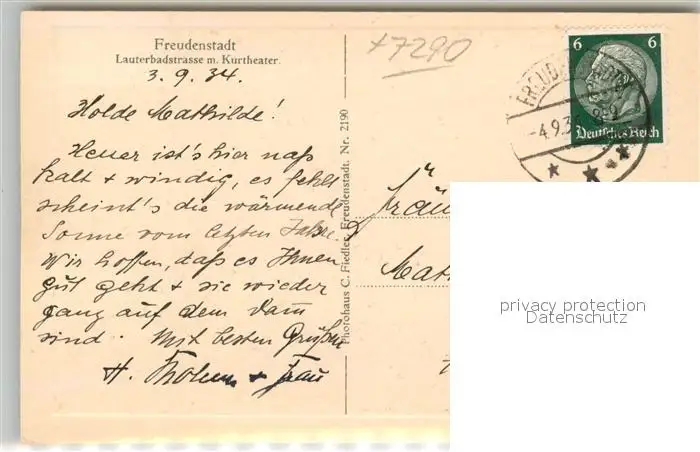 Freudenstadt
Lauterbadstrasse m. Kurtheater.
3.9.34.
Holde Mathilde!
Heuer ist's hier naß
kalt + windig, es fehlt
scheint's die wärmende
Sonne vom letzten Jahre.
Wir hoffen, daß es Ihnen
gut geht + sie wieder
ganz auf dem Damm
sind. Mit besten Grüßen
H. + Frau
Photohaus C. Fiedler, Freudenstadt. Nr. 2190
+7290
6 6
Deutsches Reich
-4.9.34
Fräu
Math
privacy protection
Datenschutz